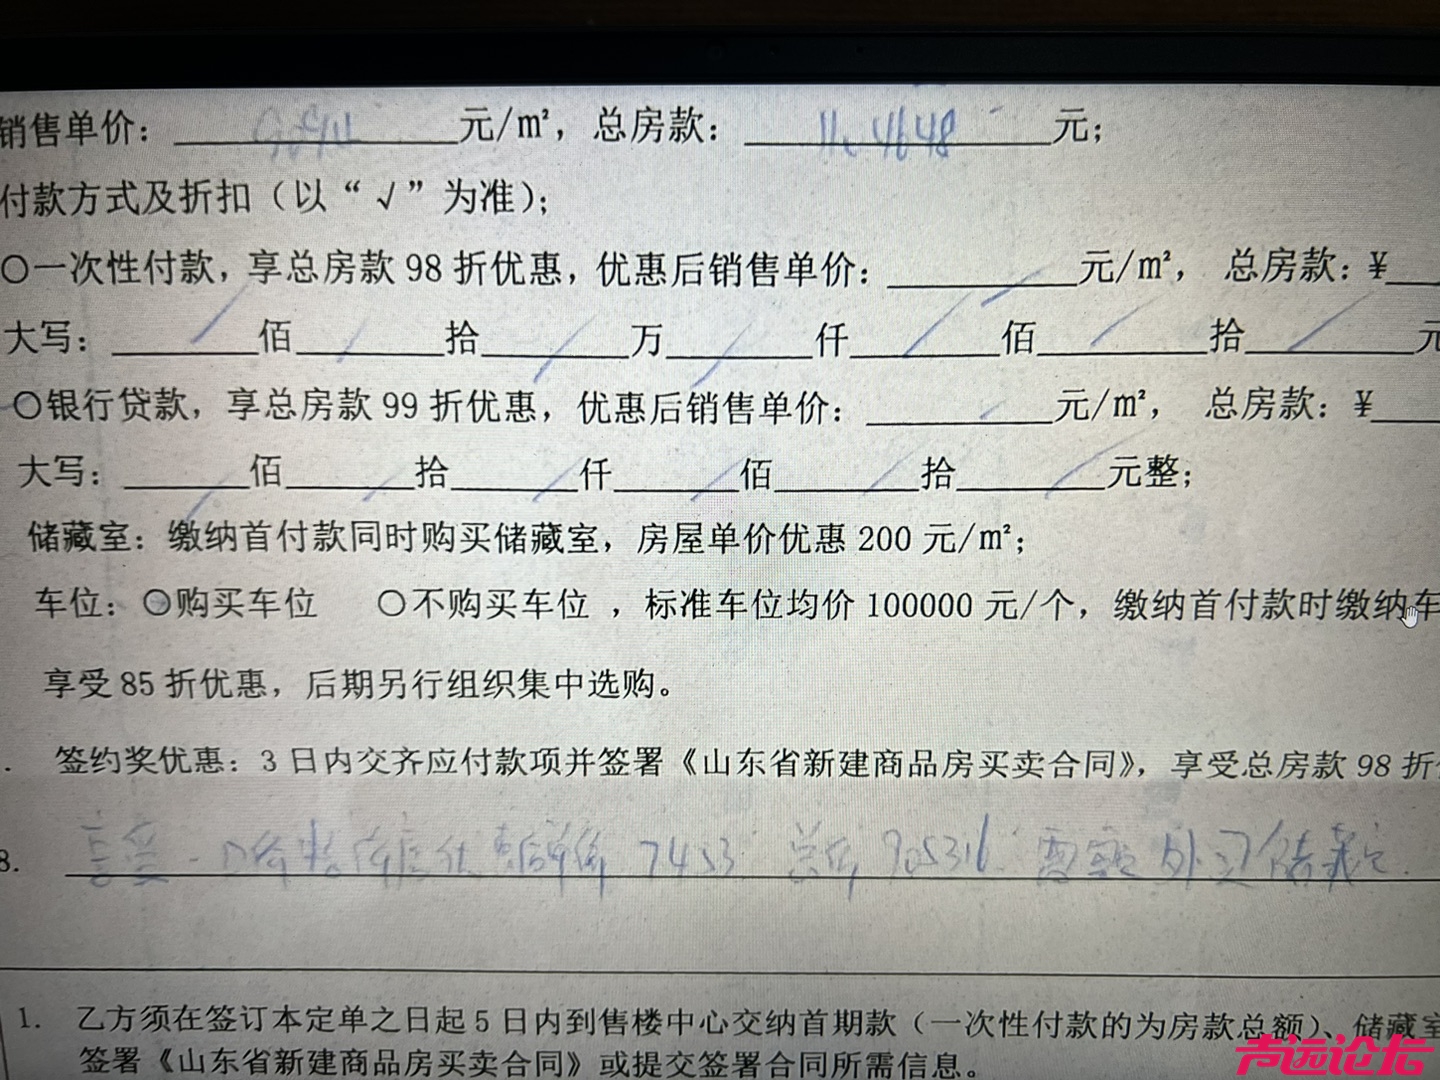 销售单价：元/m²，总房款：元；
付款方式及折扣（以“√”为准）；
○一次性付款，享总房款 98 折优惠，优惠后销售单价：元/m²， 总房款：¥
大写：佰拾万仟佰拾元
○银行贷款，享总房款 99 折优惠，优惠后销售单价：元/m²， 总房款：¥
大写：佰拾仟佰拾元整；
储藏室：缴纳首付款同时购买储藏室，房屋单价优惠 200 元/m²；
车位：○购买车位 ○不购买车位 ，标准车位均价 100000 元/个，缴纳首付款时缴纳车
享受 85 折优惠，后期另行组织集中选购。
. 签约奖优惠：3 日内交齐应付款项并签署《山东省新建商品房买卖合同》，享受总房款 98 折
8. 享受一口价 单价 7453 总价 905316 储藏室.
1. 乙方须在签订本定单之日起 5 日内到售楼中心交纳首期款（一次性付款的为房款总额）、储藏室
签署《山东省新建商品房买卖合同》或提交签署合同所需信息。
声远论坛